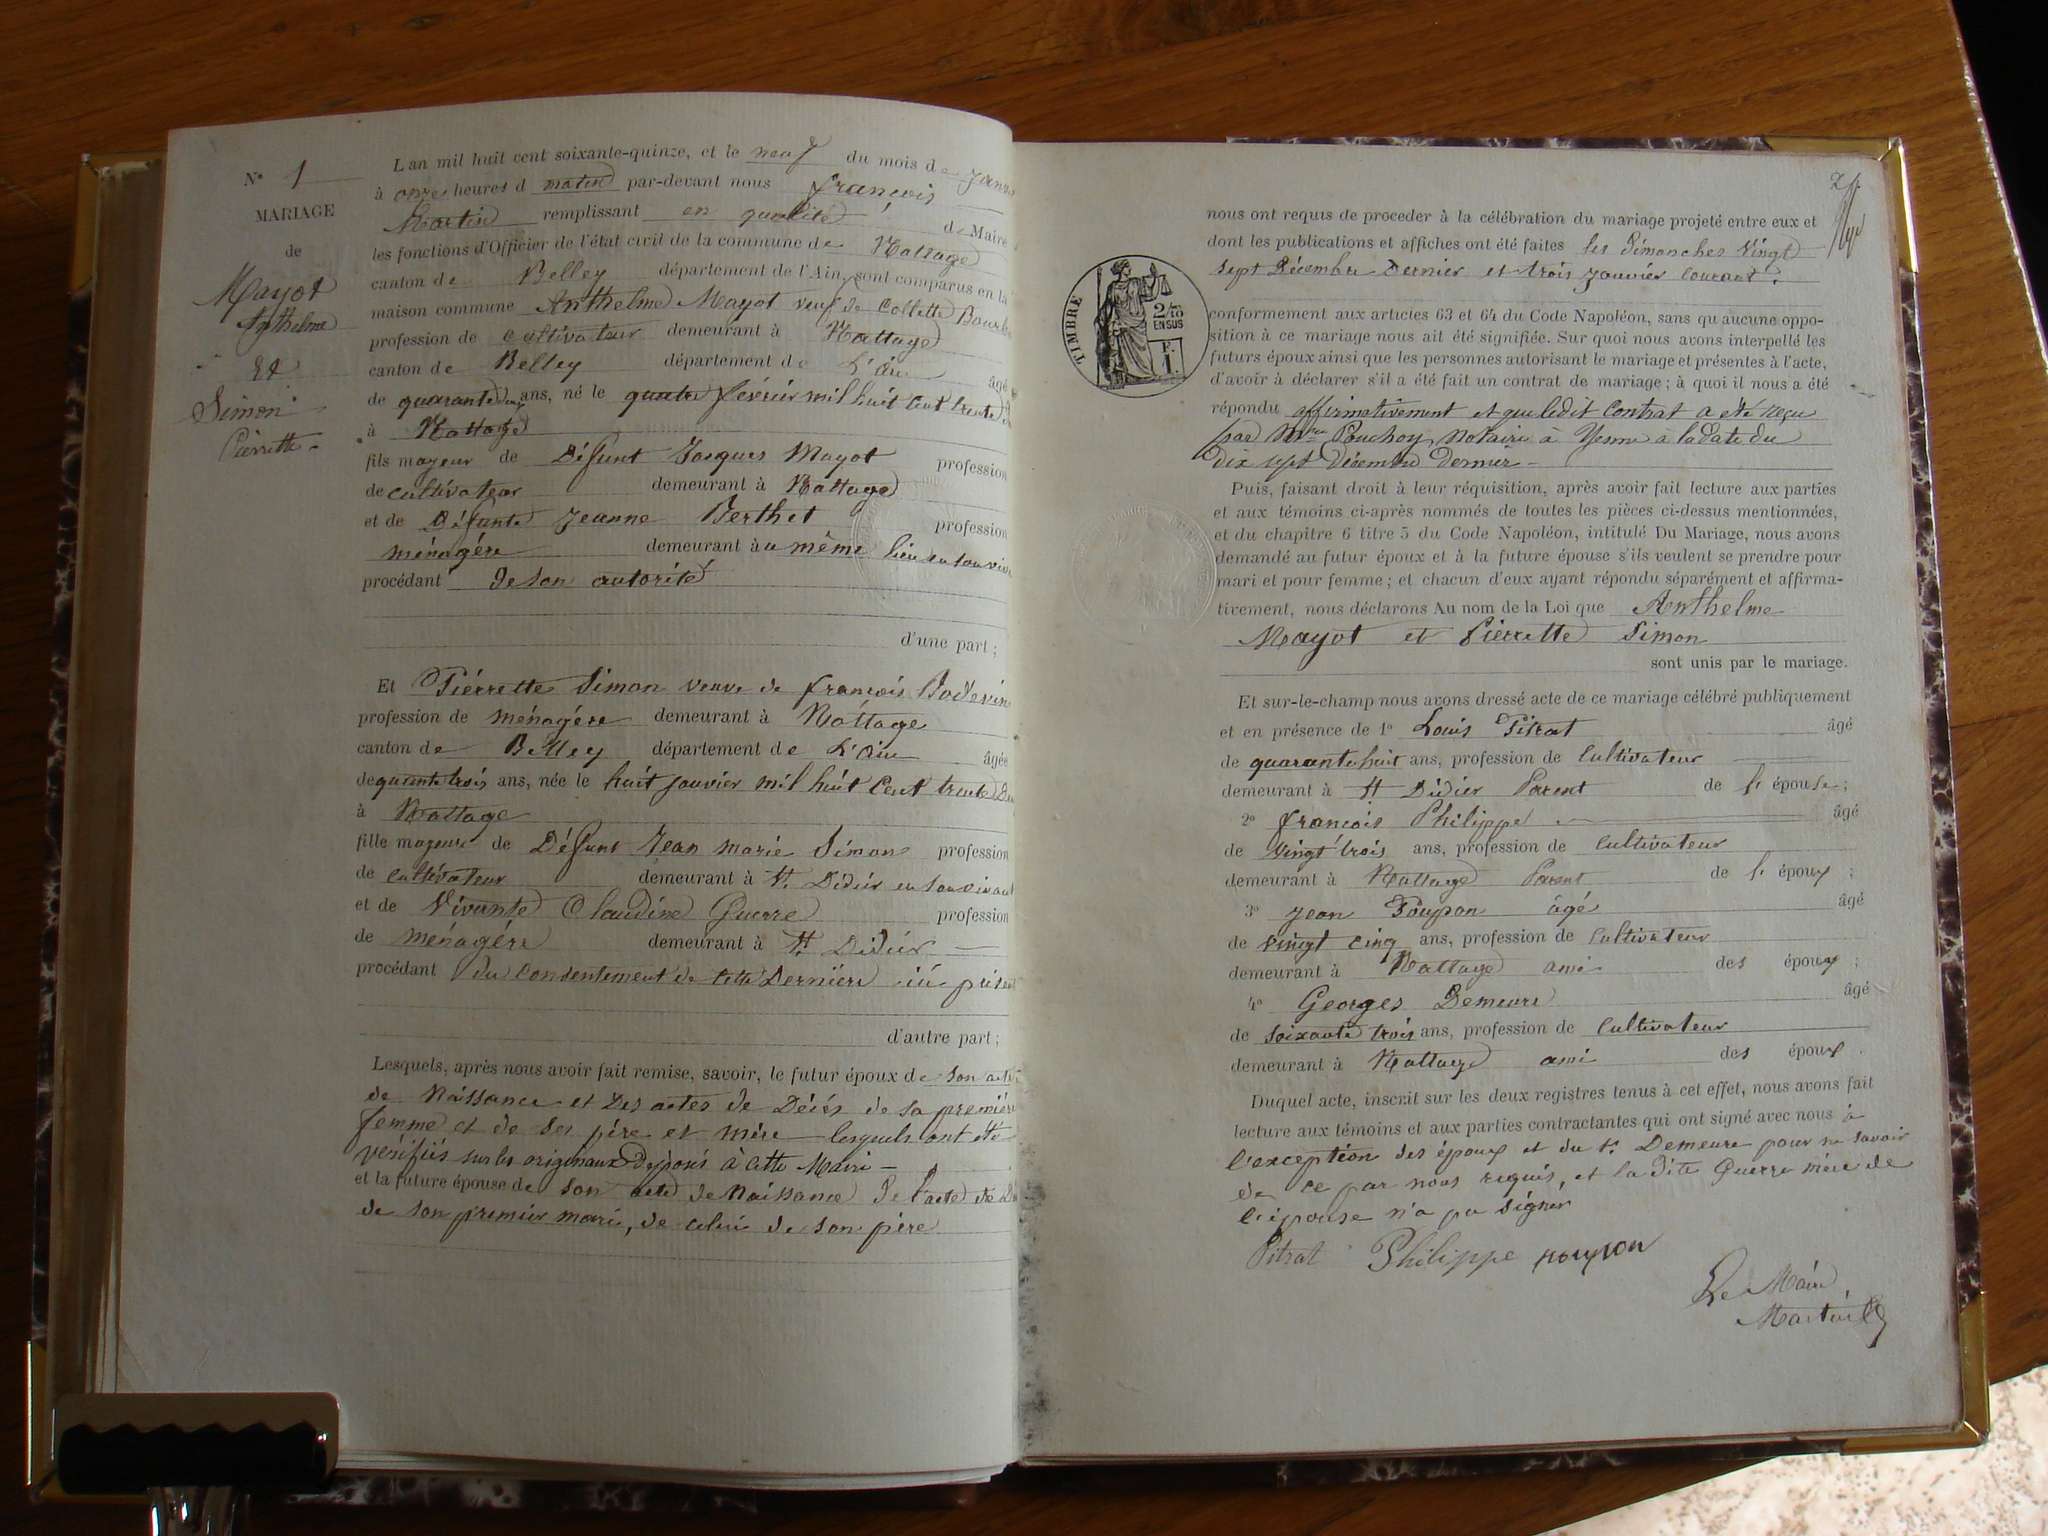 N° 1
MARIAGE
de
Mayot
Anthelme
Et
Simon
Pierrette
L'an mil huit cent soixante-quinze, et le neuf du mois de
à onze heures d matin par-devant nous françois
Martin remplissant en qualité de Maire
les fonctions d'Officier de l'état civil de la commune de Nattage
canton de Belley département de l'Ain, sont comparus en la
maison commune Anthelme Mayot veuf de Collette
profession de cultivateur demeurant à Nattage
canton de Belley département de L'ain âgé
de quarante deux ans, né le quatre février mil huit cent trente
à Nattage
fils majeur de Défunt Jacques Mayot profession
de cultivateur demeurant à Nattage
et de Défunte Jeanne Berthet profession
ménagère demeurant à u même lieu en son
procédant de son autorité
d'une part ;
Et Piérrette Simon veuve de françois
profession de ménagère demeurant à Nattage
canton de Belley département de L'ain âgée
de quarante trois ans, née le huit janvier mil huit Cent trente
à Nattage
fille majeure de Défunt Jean marie Simon profession
de cultivateur demeurant à St. Didier en son vivant
et de Vivante Claudine Guerre profession
de ménagère demeurant à St Didier
procédant du consentement de cette Dernière ici
d'autre part ;
Lesquels, après nous avoir fait remise, savoir, le futur époux de son acte
de Naissance et Des actes de Décès de sa première
femme et de ses père et mère lesquels ont été
vérifiés sur les originaux Déposés à cette Mairie
et la future épouse de son acte de Naissance de l'acte de
de son premier mari, de celui de son père
TIMBRE
2/10
EN SUS
F.
1.
nous ont requis de proceder à la célébration du mariage projeté entre eux et
dont les publications et affiches ont été faites les Dimanches Vingt
sept Décembre Dernier et trois janvier courant.
conformement aux articles 63 et 64 du Code Napoléon, sans qu'aucune oppo-
sition à ce mariage nous ait été signifiée. Sur quoi nous avons interpellé les
futurs époux ainsi que les personnes autorisant le mariage et présentes à l'acte,
d'avoir à déclarer s'il a été fait un contrat de mariage; à quoi il nous a été
répondu affirmativement et que ledit Contrat a été reçu
par Pouchoy, Notaire à Yenne à la date du
dix sept Décembre dernier
Puis, faisant droit à leur réquisition, après avoir fait lecture aux parties
et aux témoins ci-après nommés de toutes les pièces ci-dessus mentionnées,
et du chapitre 6 titre 5 du Code Napoléon, intitulé Du Mariage, nous avons
demandé au futur époux et à la future épouse s'ils veulent se prendre pour
mari et pour femme ; et chacun d'eux ayant répondu séparément et affirma-
tivement, nous déclarons Au nom de la Loi que Anthelme
Mayot et Piérrette Simon
sont unis par le mariage.
Et sur-le-champ nous avons dressé acte de ce mariage célébré publiquement
et en présence de 1° Louis Pitrat âgé
de quarante huit ans, profession de Cultivateur
demeurant à St Didier Parent de l' épouse;
2° françois Philippe âgé
de vingt trois ans, profession de Cultivateur
demeurant à Nattage Parent de l' époux ;
3° Jean Poupon âgé âgé
de vingt cinq ans, profession de Cultivateur
demeurant à Nattage ami des époux ;
4° Georges Demeure âgé
de soixante trois ans, profession de Cultivateur
demeurant à Nattage ami des époux .
Duquel acte, inscrit sur les deux registres tenus à cet effet, nous avons fait
lecture aux témoins et aux parties contractantes qui ont signé avec nous à
l'exception des époux et du Sr. Demeure pour ne savoir
de ce par nous requis, et la dite Guerre mère de
l'épouse n'a pu signer
Pitrat Philippe poupon
Le Maire
Martin